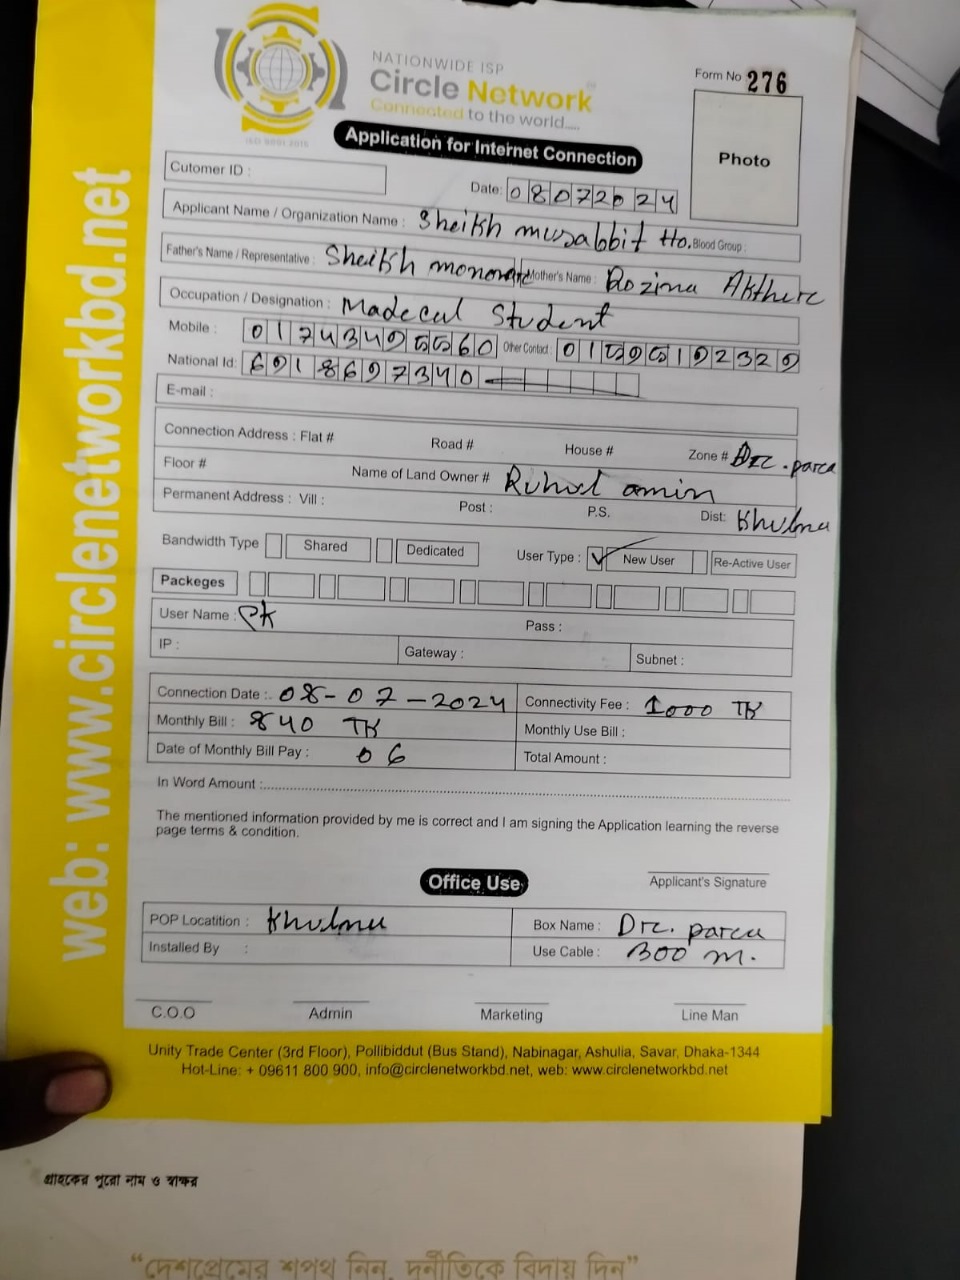 NATIONWIDE ISP
Circle Network
Connected to the world.....
ISO 9001:2015
Form No 276
Application for Internet Connection
Photo
Cutomer ID :
Date: 08072024
Applicant Name / Organization Name : Sheikh musabbit Ho. Blood Group :
Father's Name / Representative : Sheikh Mother's Name : Rozina Aktherc
Occupation / Designation : Madecal Student
Mobile : 01743495560 Other Contact : 01595192329
National Id: 6918697340
E-mail :
Connection Address : Flat # Road # House # Zone # Drc. parca
Floor # Name of Land Owner # Ruhul amin
Permanent Address : Vill : Post : P.S. Dist: Khulna
Bandwidth Type Shared Dedicated User Type : ✓ New User Re-Active User
Packeges
User Name : PK Pass :
IP : Gateway : Subnet :
Connection Date :. 08-07-2024 Connectivity Fee : 1000 TK
Monthly Bill : 840 TK Monthly Use Bill :
Date of Monthly Bill Pay : 06 Total Amount :
In Word Amount :
The mentioned information provided by me is correct and I am signing the Application learning the reverse
page terms & condition.
Office Use
Applicant's Signature
POP Locatition : Khulna Box Name : Drc. parca
Installed By : Use Cable : 300 m.
C.O.O Admin Marketing Line Man
Unity Trade Center (3rd Floor), Pollibiddut (Bus Stand), Nabinagar, Ashulia, Savar, Dhaka-1344
Hot-Line: + 09611 800 900, info@circlenetworkbd.net, web: www.circlenetworkbd.net
web: www.circlenetworkbd.net
গ্রাহকের পুরো নাম ও স্বাক্ষর
“দেশপ্রেমের শপথ নিন, দুর্নীতিকে বিদায় দিন”